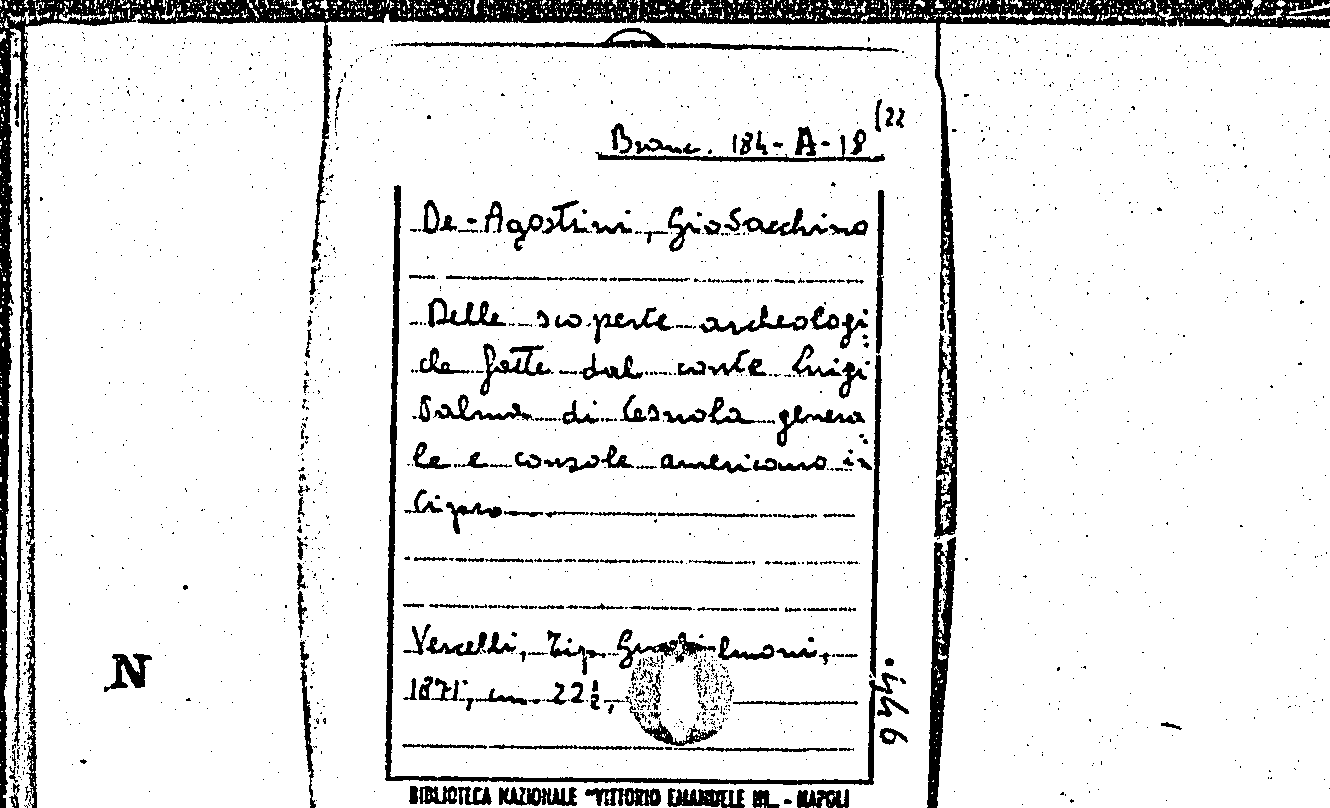 Branc. 184-A-18 (22
De-Agostini, Gioacchino
Delle scoperte archeologi
che fatte dal conte Luigi
Palma di Cesnola genera
le e console americano in
Cipro
Vercelli, Tip. Guglielmoni,
1871, cm. 22½,
N
BIBLIOTECA NAZIONALE "VITTORIO EMANUELE III„ - NAPOLI